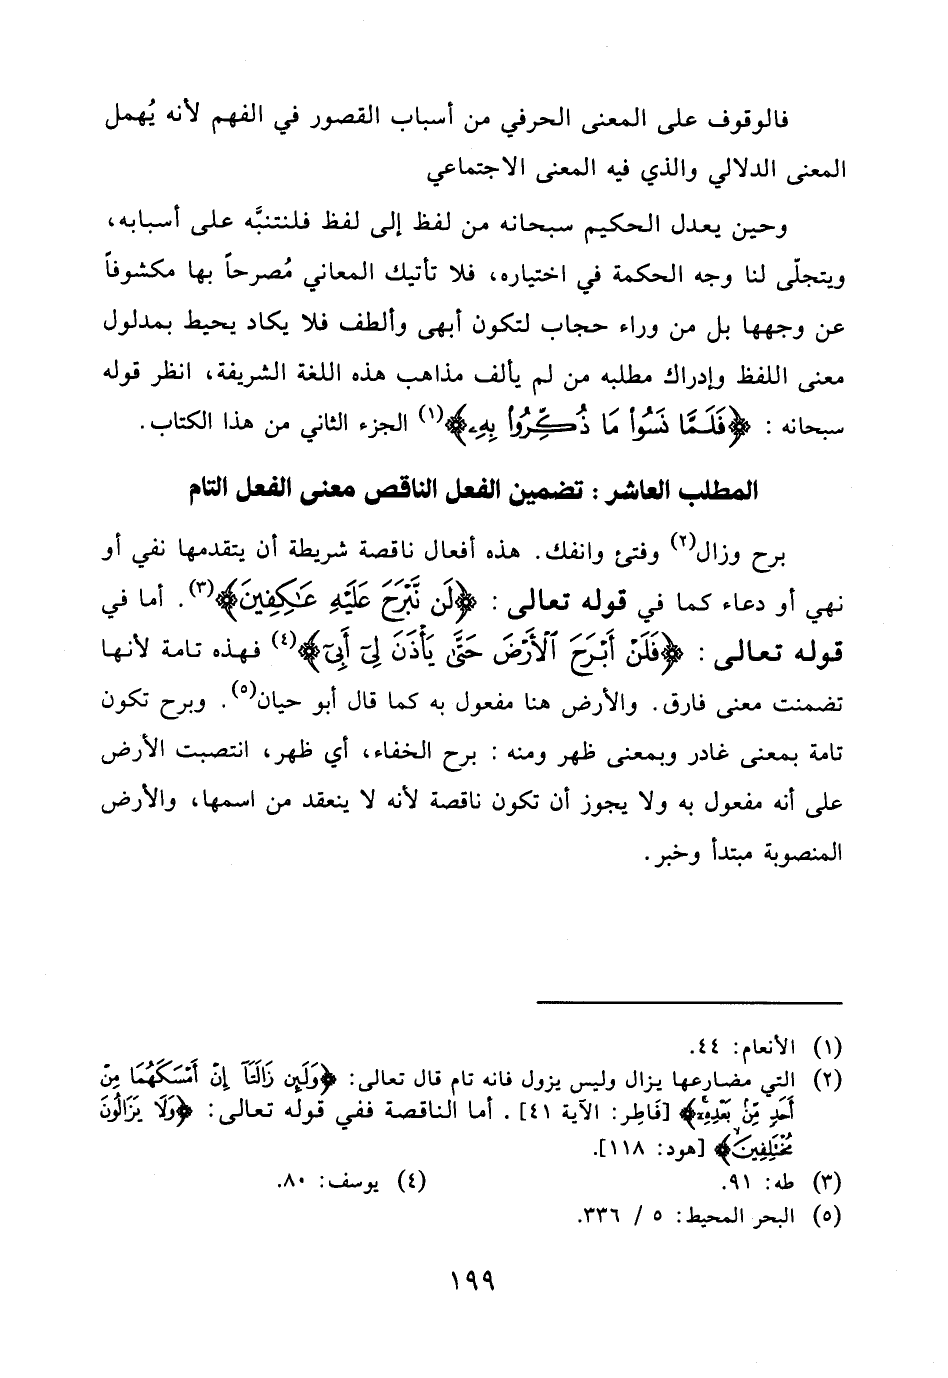 فالوقوف على المعنى الحرفي من أسباب القصور في الفهم لأنه يُهمل
المعنى الدلالي والذي فيه المعنى الاجتماعي
وحين يعدل الحكيم سبحانه من لفظ إلى لفظ فلنتنبَّه على أسبابه،
ويتجلّى لنا وجه الحكمة في اختياره، فلا تأتيك المعاني مُصرحاً بها مكشوفاً
عن وجهها بل من وراء حجاب لتكون أبهى وألطف فلا يكاد يحيط بمدلول
معنى اللفظ وإدراك مطلبه من لم يألف مذاهب هذه اللغة الشريفة، انظر قوله
سبحانه : ﴿فَلَمَّا نَسُوا۟ مَا ذُكِّرُوا۟ بِهِۦ﴾(١) الجزء الثاني من هذا الكتاب.
المطلب العاشر : تضمين الفعل الناقص معنى الفعل التام
برح وزال(٢) وفتئ وانفك. هذه أفعال ناقصة شريطة أن يتقدمها نفي أو
نهي أو دعاء كما في قوله تعالى : ﴿لَن نَّبْرَحَ عَلَيْهِ عَٰكِفِينَ﴾(٣). أما في
قوله تعالى : ﴿فَلَنْ أَبْرَحَ ٱلْأَرْضَ حَتَّىٰ يَأْذَنَ لِىٓ أَبِىٓ﴾(٤) فهذه تامة لأنها
تضمنت معنى فارق. والأرض هنا مفعول به كما قال أبو حيان(٥). وبرح تكون
تامة بمعنى غادر وبمعنى ظهر ومنه : برح الخفاء، أي ظهر، انتصبت الأرض
على أنه مفعول به ولا يجوز أن تكون ناقصة لأنه لا ينعقد من اسمها، والأرض
المنصوبة مبتدأ وخبر.
(١) الأنعام: ٤٤.
(٢) التي مضارعها يزال وليس يزول فانه تام قال تعالى: ﴿وَلَئِن زَالَتَآ إِنْ أَمْسَكَهُمَا مِنْ
أَحَدٍ مِّنۢ بَعْدِهِۦٓ﴾ [فَاطِر: الآية ٤١]. أما الناقصة ففي قوله تعالى: ﴿وَلَا يَزَالُونَ
مُخْتَلِفِينَ﴾ [هود: ١١٨].
(٣) طه: ٩١. (٤) يوسف: ٨٠.
(٥) البحر المحيط: ٥ / ٣٣٦.
١٩٩